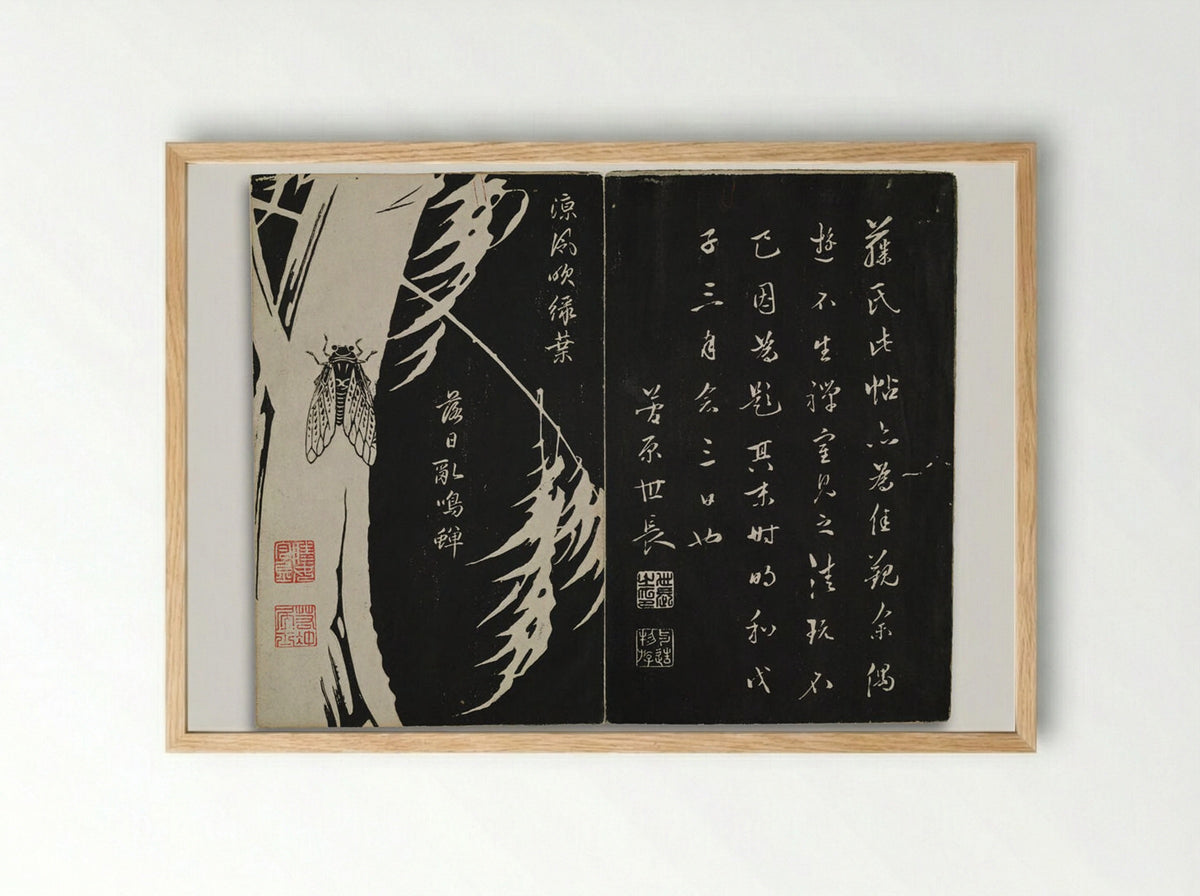 藤氏此帖亦為佳觀余偶
遊不生禅室見之清玩不
已因為題其末時明和戊
子三月念三日也
菅原世長
涼風吹緑葉
落日亂鳴蝉